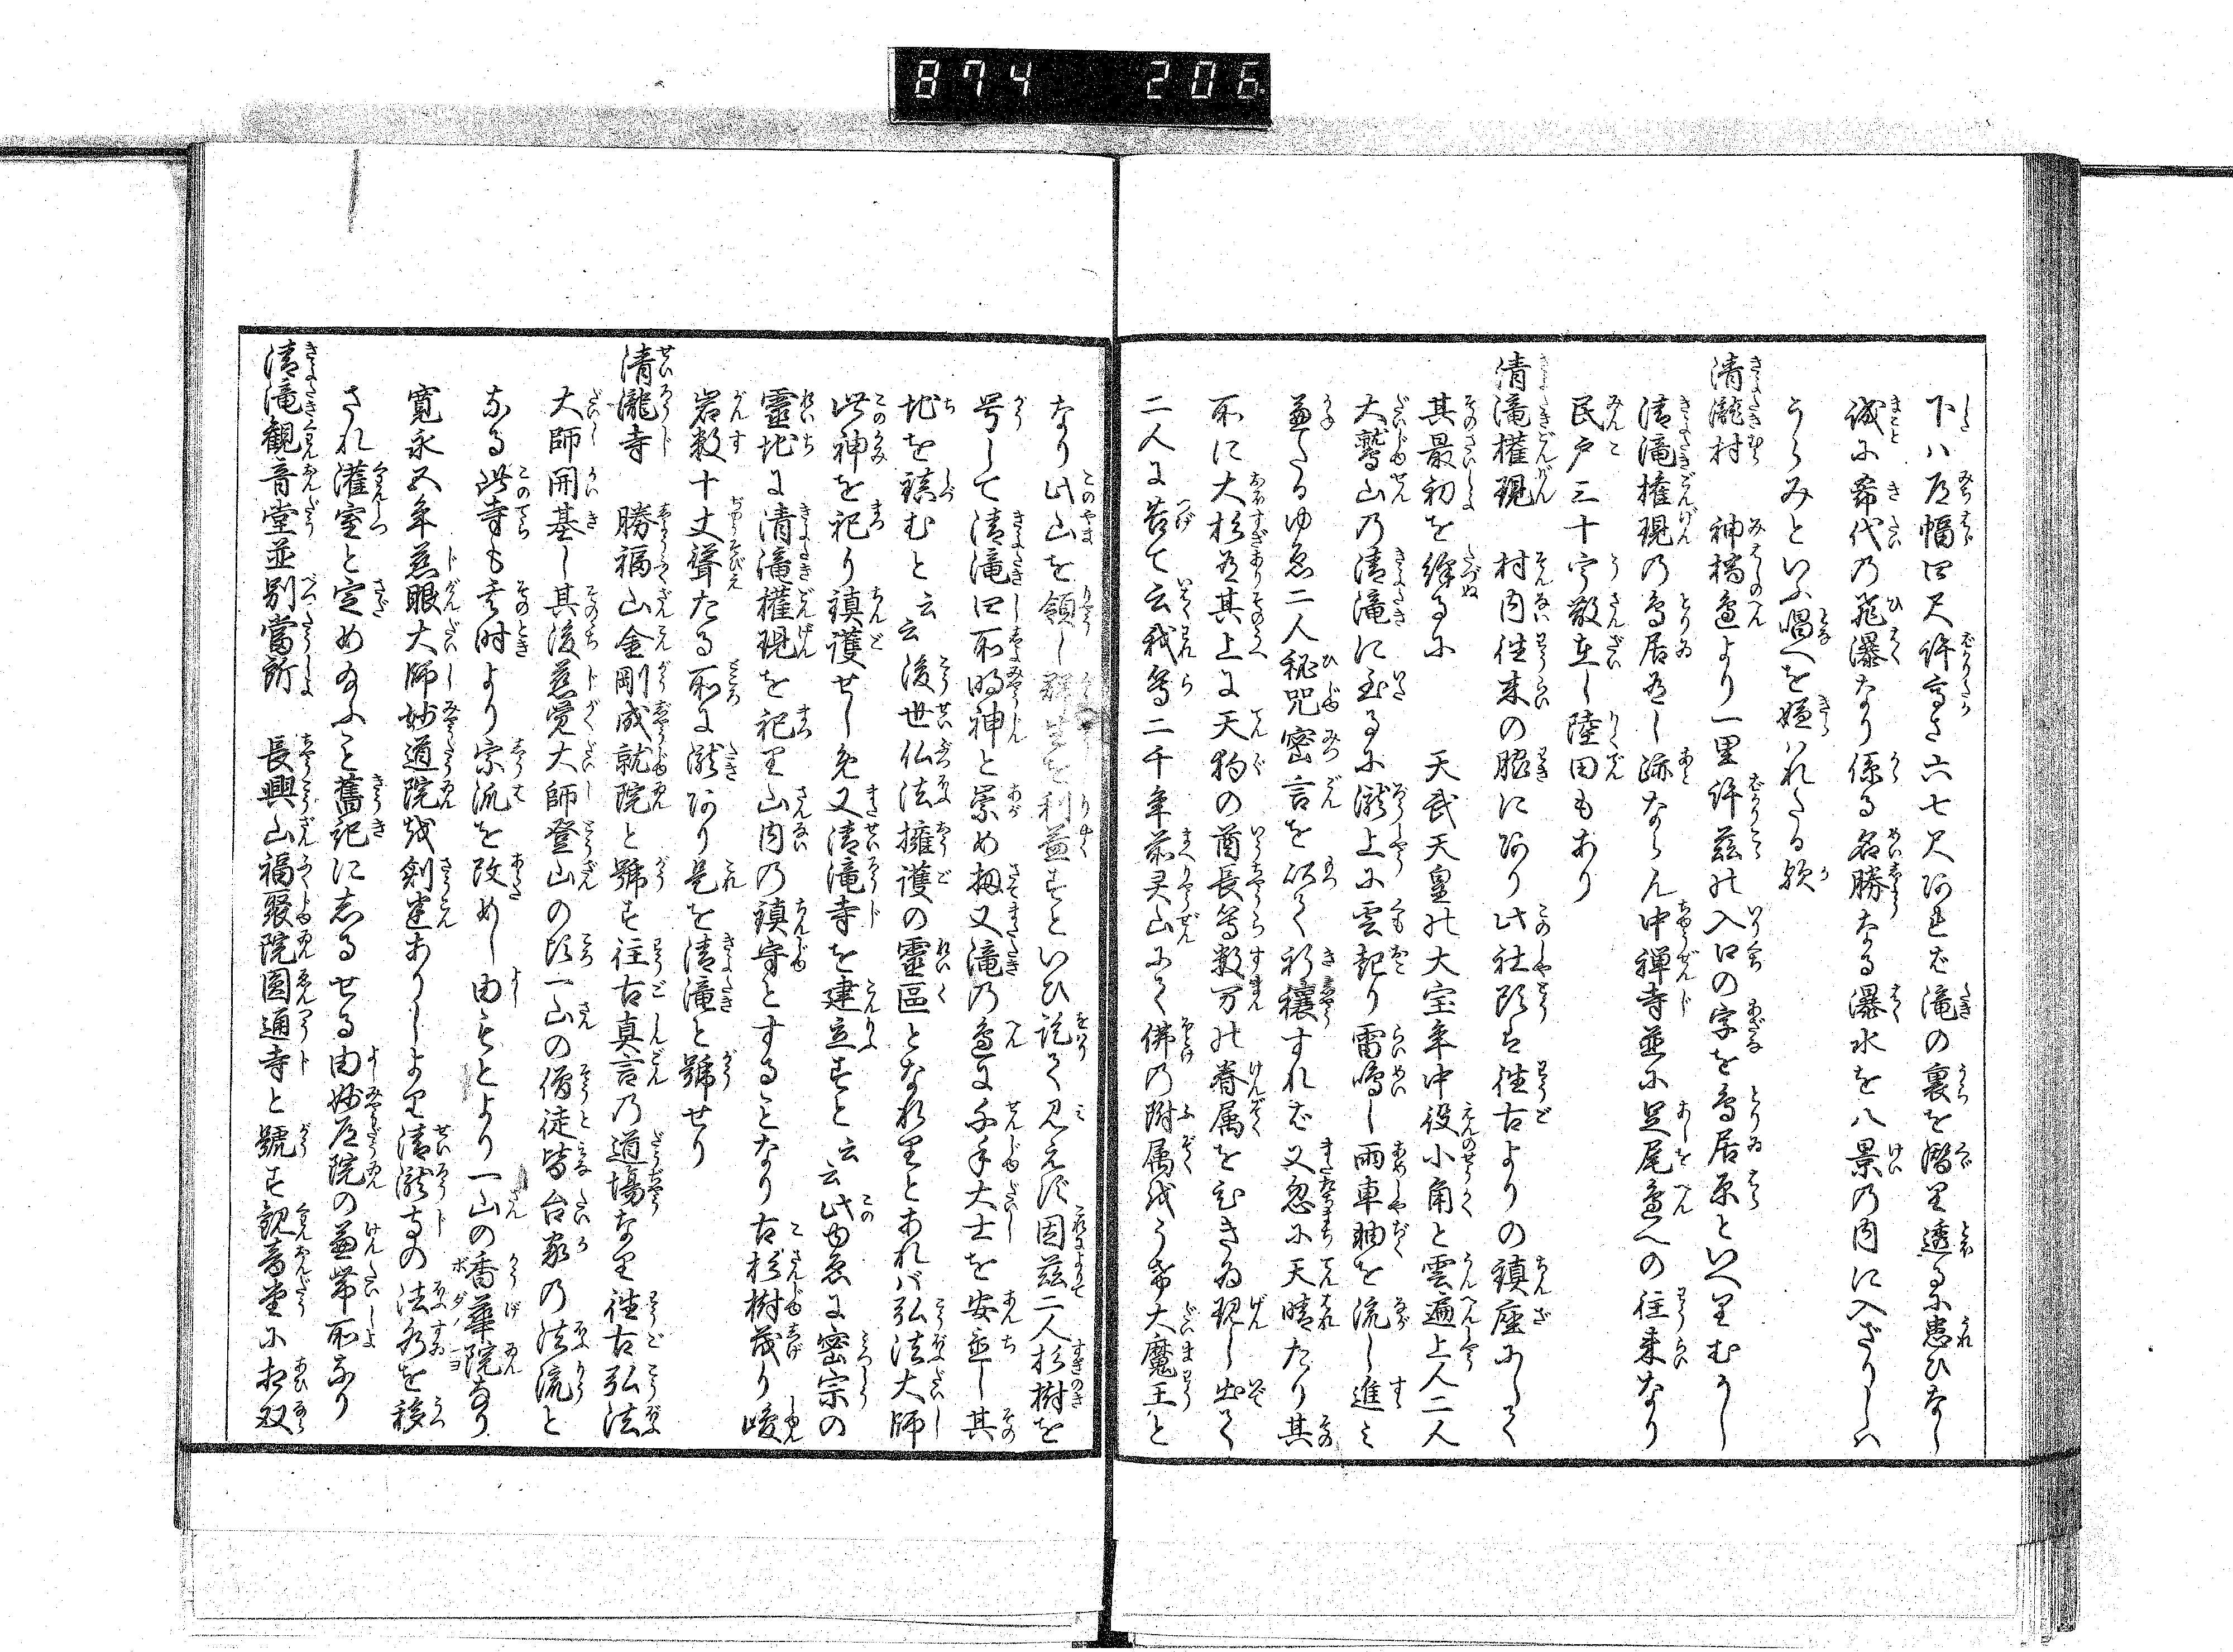 874 206
下ハ道幅四尺許高さ六七尺阿れど滝の裏を潜里透るに患ひなし
誠に希代の飛瀑なり係る名勝なる瀑水を八景の内に入ざりしハ
うらみといふ唱へを嫌ハれたる歟
清瀧村 神橋邉より一里許茲の入口の字を鳥居原といへりむかし
清滝権現の鳥居有し跡ならん中禅寺並に足尾邉への往来なり
民戸三十宇散在し陸田もあり
清滝権現 村内往来の脇に阿り此社頭は往古よりの鎮座にして
其最初を繹るに 天武天皇の大宝年中役小角と雲遍上人二人
大鷲山の清滝に至るに瀧上に雲起り雷鳴し雨車軸を流し進ミ
兼たるゆゑ二人秘咒密言を以て祈穰すれど又忽に天晴たり其
所に大杉有其上に天狗の酋長等数万の眷属をひきゐ現し出て
二人に告て云我等二千年前霊山にて佛の附属をうけ大魔王と
なり此山を領し群生を利益すといひ訖て見えず因茲二人杉樹を
号して清滝四所明神と崇め扨又滝の邉に千手大士を安置し其
地を鎮むと云云後世仏法擁護の靈區となれりとあれバ弘法大師
此神を祀り鎮護せしめ又清滝寺を建立すと云云此ゆゑに密宗の
靈地に清滝權現を祀里山内の鎮守とすることなり古杉樹茂り峻
岩数十丈聳たる所に瀧阿り是を清滝と號せり
清瀧寺 勝福山金剛成就院と號す往古真言の道場なり往古弘法
大師開基し其後慈覚大師登山の頃一山の僧徒皆台家の法流と
なる此寺も其時より宗流を改めし由もとより一山の香華院なり
寛永五年慈眼大師妙道院を創建ありしより清瀧寺の法务を移
され灌室と定め給ふこと舊記に志るせる由妙道院の兼帯所なり
清滝観音堂並別當所 長興山福聚院圓通寺と號す観音堂に相双